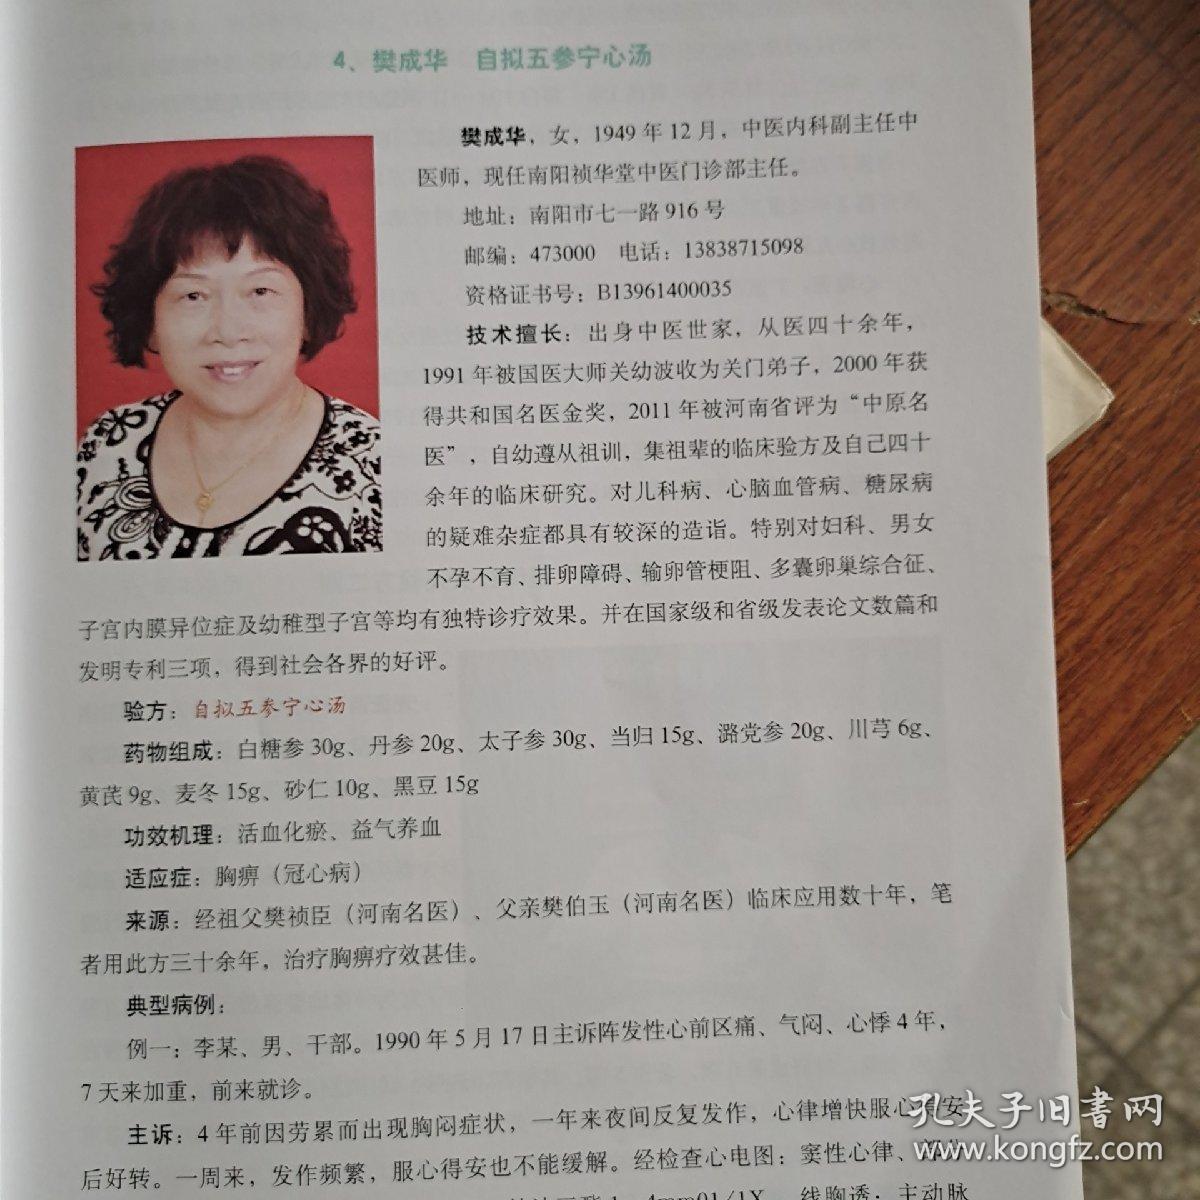 4、樊成华 自拟五参宁心汤
樊成华，女，1949年12月，中医内科副主任中
医师，现任南阳祯华堂中医门诊部主任。
地址：南阳市七一路916号
邮编：473000 电话：13838715098
资格证书号：B13961400035
技术擅长：出身中医世家，从医四十余年，
1991年被国医大师关幼波收为关门弟子，2000年获
得共和国名医金奖，2011年被河南省评为“中原名
医”，自幼遵从祖训，集祖辈的临床验方及自己四十
余年的临床研究。对儿科病、心脑血管病、糖尿病
的疑难杂症都具有较深的造诣。特别对妇科、男女
不孕不育、排卵障碍、输卵管梗阻、多囊卵巢综合征、
子宫内膜异位症及幼稚型子宫等均有独特诊疗效果。并在国家级和省级发表论文数篇和
发明专利三项，得到社会各界的好评。
验方：自拟五参宁心汤
药物组成：白糖参30g、丹参20g、太子参30g、当归15g、潞党参20g、川芎6g、
黄芪9g、麦冬15g、砂仁10g、黑豆15g
功效机理：活血化瘀、益气养血
适应症：胸痹（冠心病）
来源：经祖父樊祯臣（河南名医）、父亲樊伯玉（河南名医）临床应用数十年，笔
者用此方三十余年，治疗胸痹疗效甚佳。
典型病例：
例一：李某、男、干部。1990年5月17日主诉阵发性心前区痛、气闷、心悸4年，
7天来加重，前来就诊。
主诉：4年前因劳累而出现胸闷症状，一年来夜间反复发作，心律增快服心得安
后好转。一周来，发作频繁，服心得安也不能缓解。经检查心电图：窦性心律、部分
线胸透：主动脉
孔夫子旧書网
www.kongfz.com